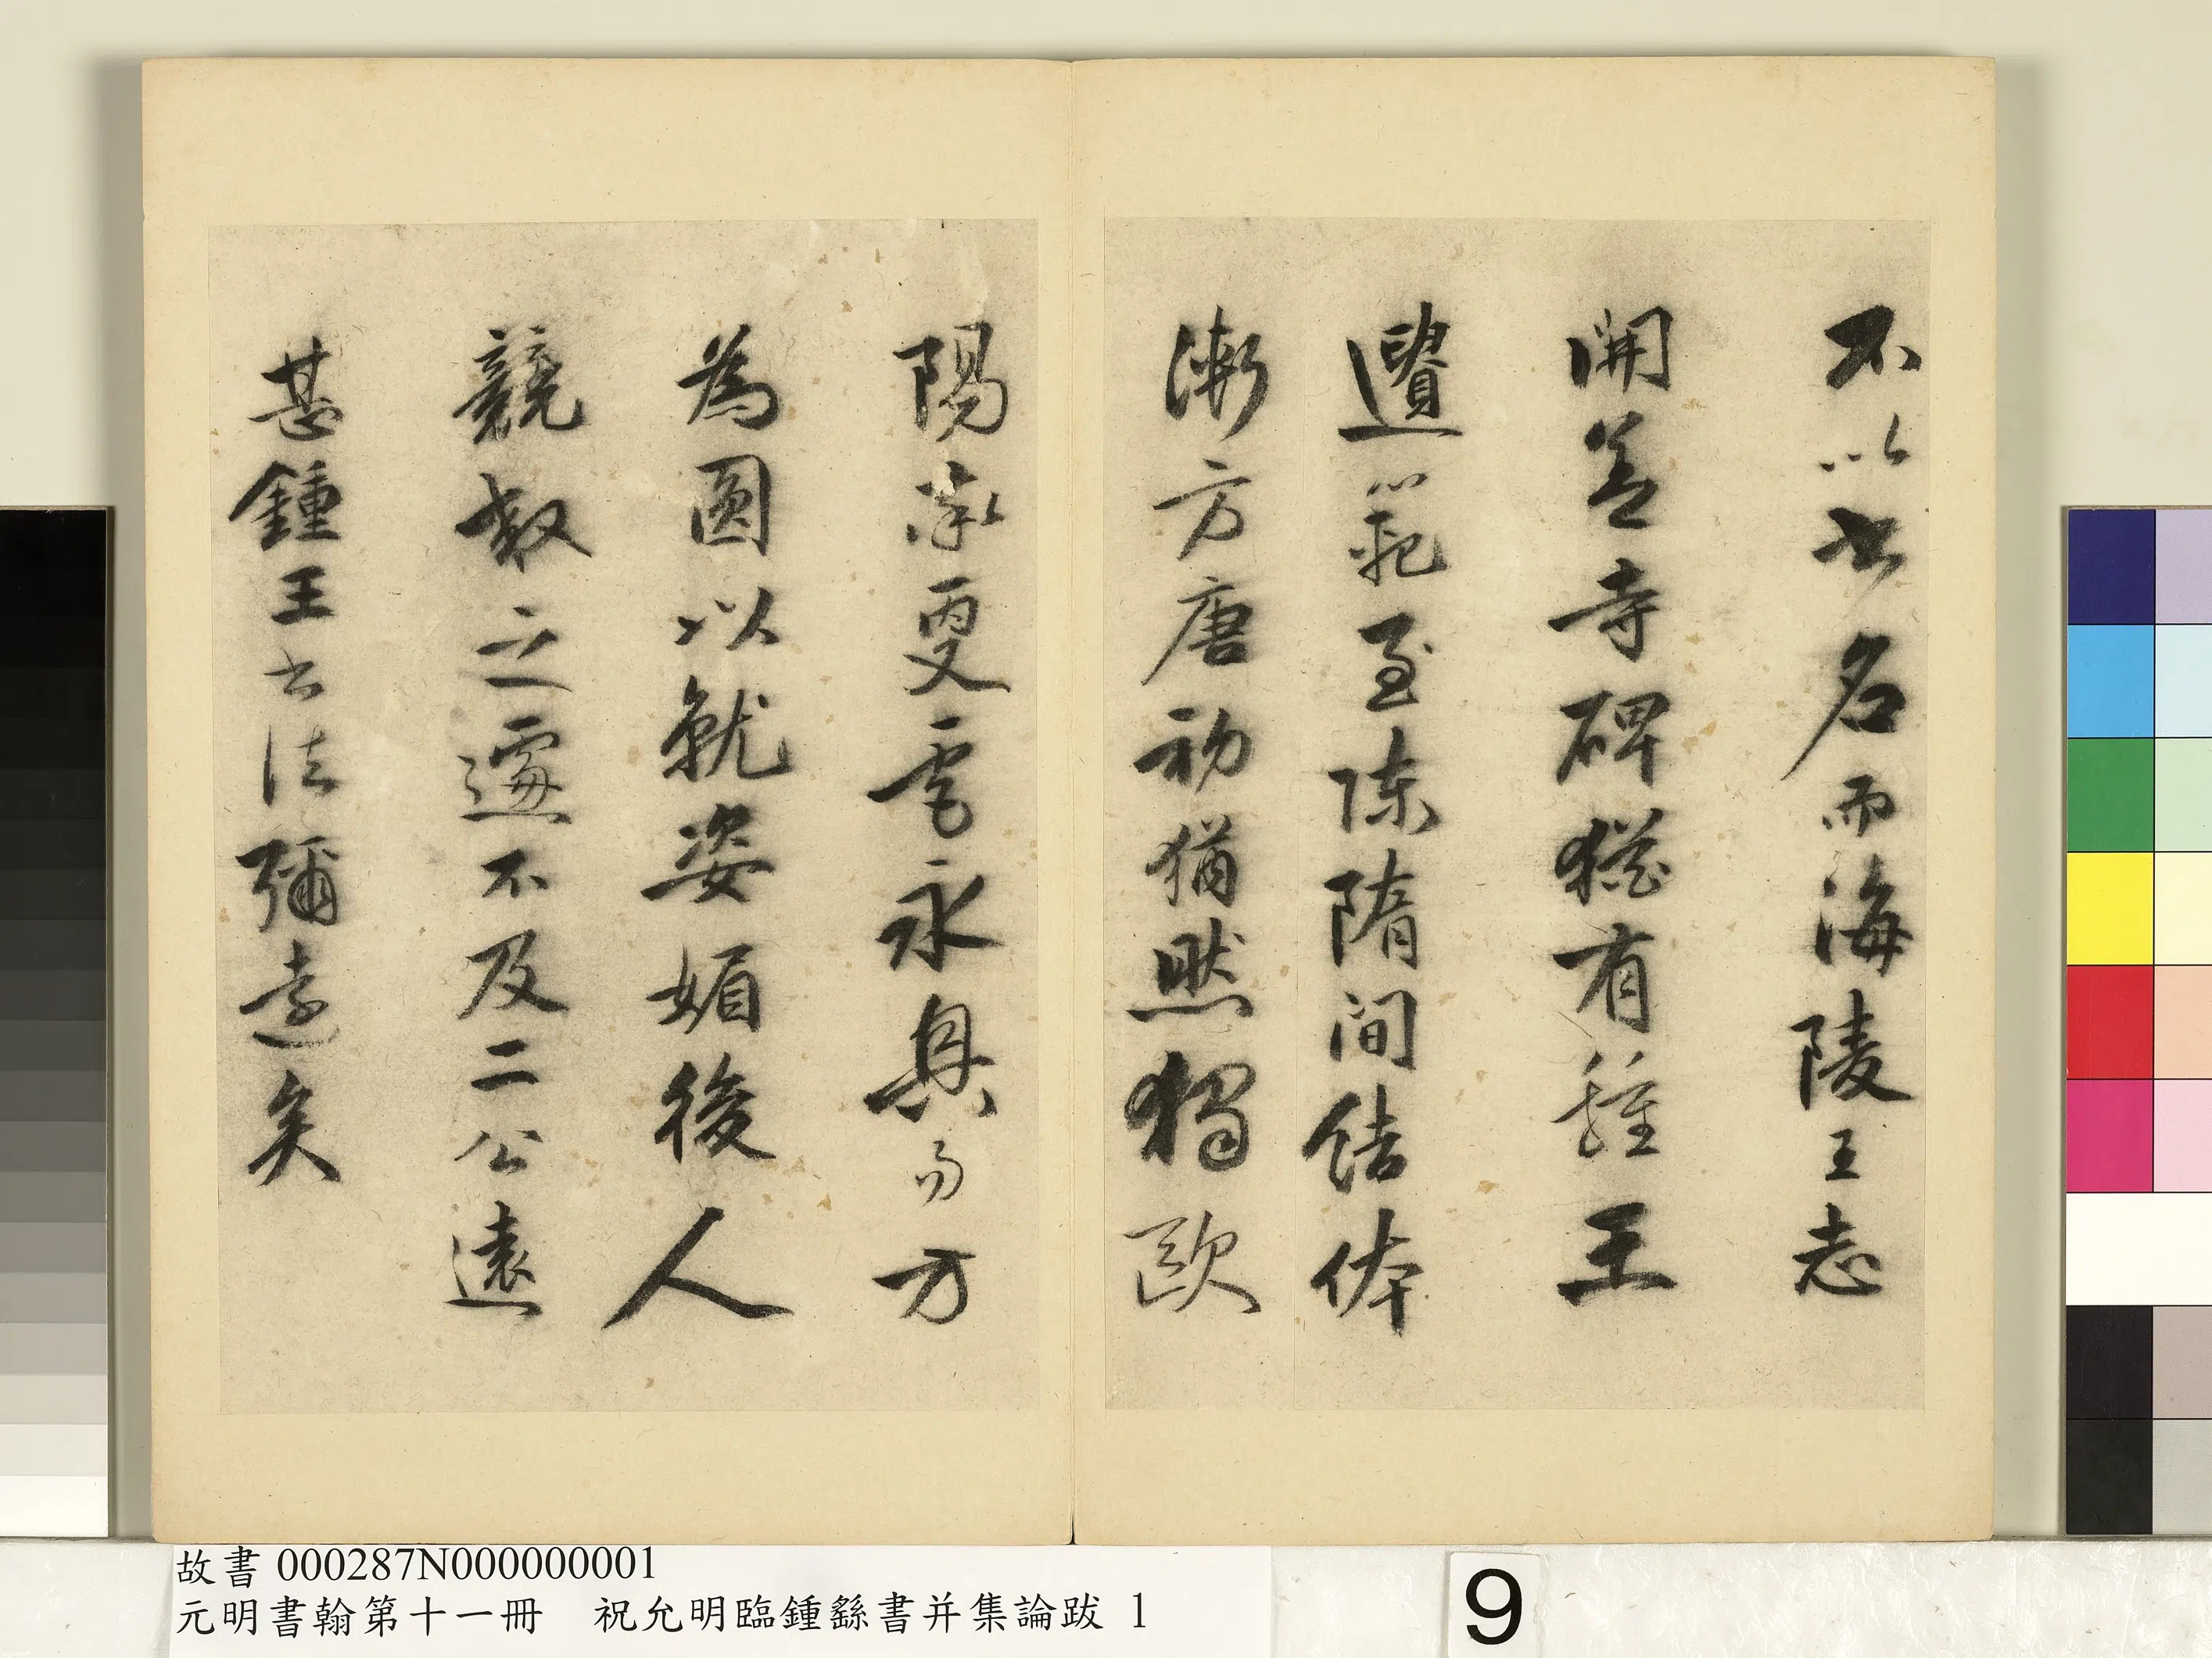 不以書名而海陵王志
開善寺碑猶有鍾王
遺範至陳隋間結体
漸方唐初猶然獨歐
陽率更虞永興易方
為圓以就姿媚後人
競效之遽不及二公遠
甚鍾王書法彌遠矣
故書 000287N000000001
元明書翰第十一冊 祝允明臨鍾繇書并集論跋 1
9